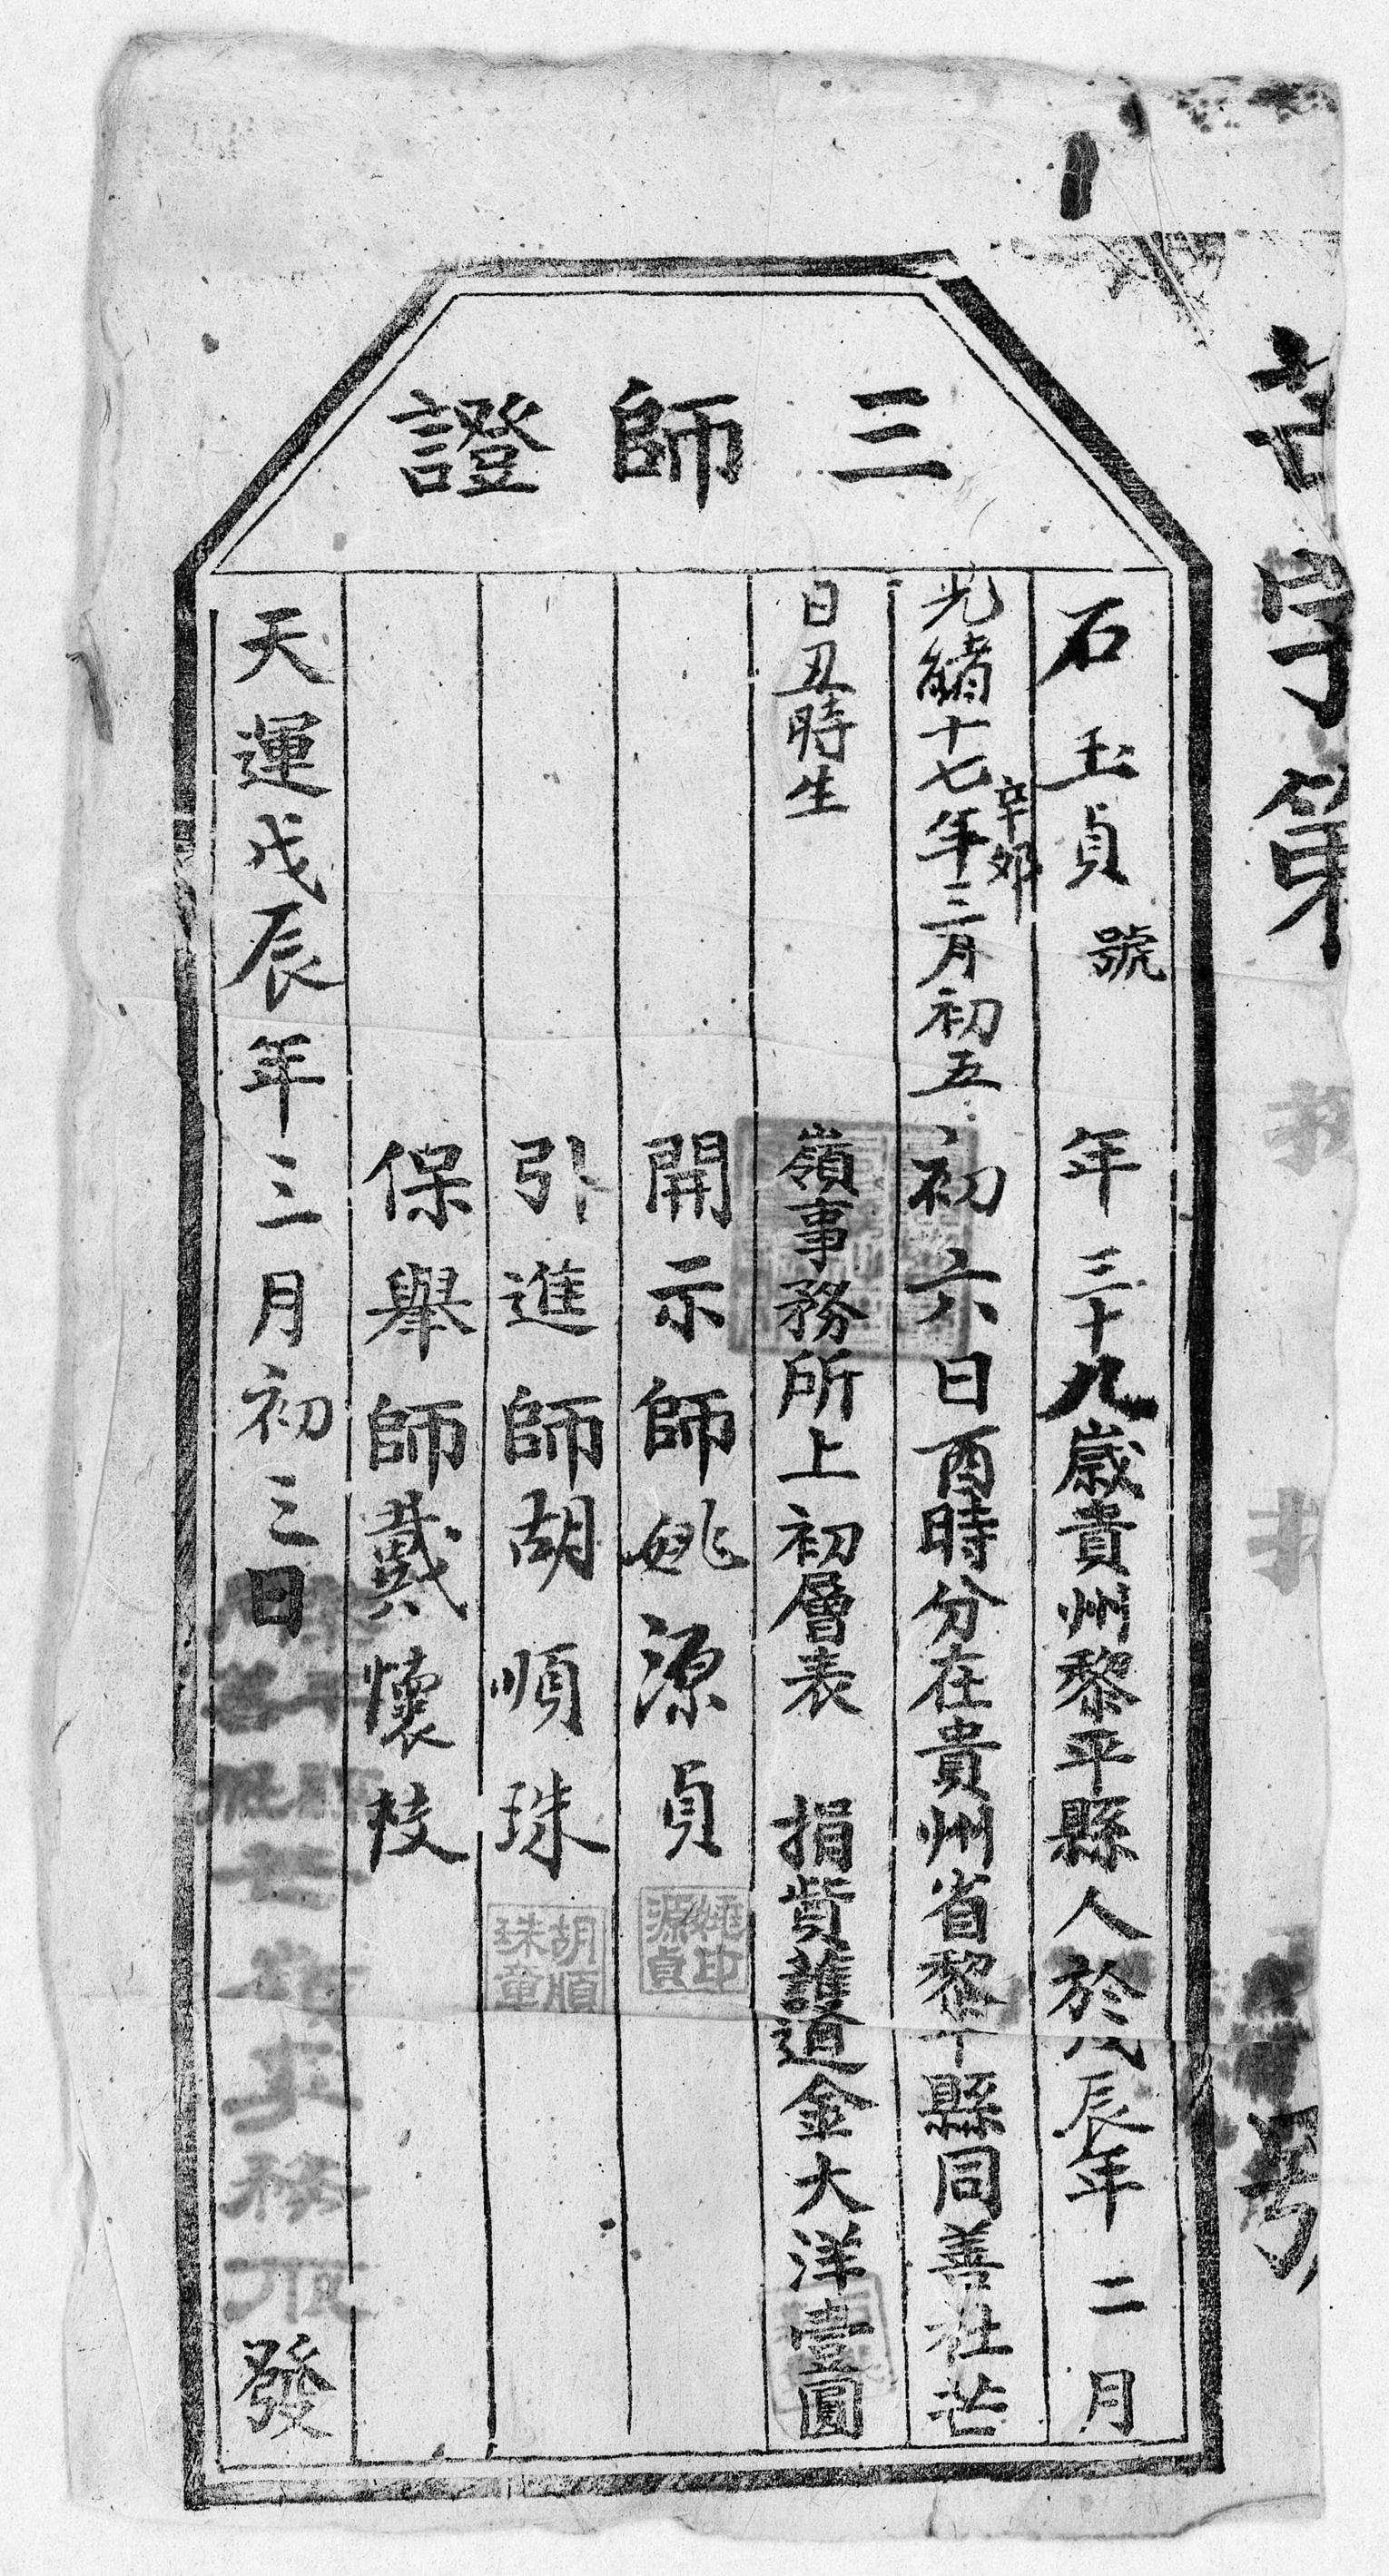 芒字第
号
三師證
石玉貞號 年三十九歲貴州黎平縣人於戊辰年二月
光緒十七年辛卯三月初五 初六日酉時分在貴州省黎平縣同善社芒
日丑時生 嶺事務所上初層表 捐貲護道金大洋壹圓
開示師姚源貞
姚印源貞
引進師胡順珠
胡順珠章
保舉師戴懷枝
天運戊辰年三月初三日
發